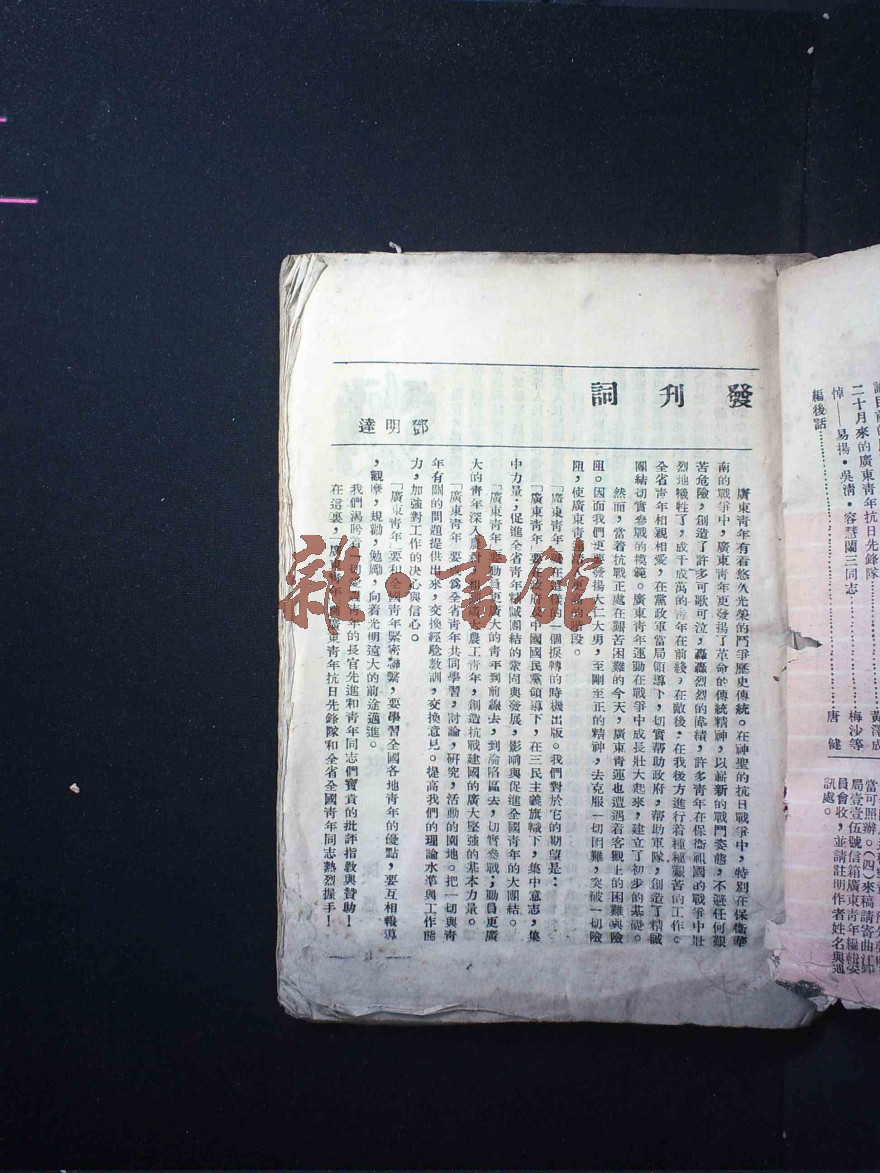 發刊詞
鄧明達
廣東青年有着悠久光榮的鬥爭歷史傳統。在神聖的抗日戰爭中，特別在保衛華
南的戰爭中，廣東青年更發揚了革命的傳統精神，以嶄新的戰鬥姿態，不避任何艱
苦危險，創造了許多可歌可泣，轟轟烈烈的偉績，許多青年在保衛祖國的戰爭中壯
烈地犧牲了，成千成萬的青年在前綫，在敵後，在我後方進行着種種艱苦的工作。
全省青年相親相愛，在黨政軍當局領導下，切實帮助政府，帮助軍隊，創造了精誠
團結切實參戰的模範。廣東青年運動在戰爭中成長壯大起來，建立了初步的基礎。
然而，當着抗戰正處在艱苦困難的今天，廣東青運也遭遇着客觀上的困難與險
阻。因而我們更要發揚大仁大勇，至剛至正的精神，去克服一切困難，突破一切險
阻，使廣東青運 更高的階段。
「廣東青年」在這樣的一個扳轉的時機出版。我們對於它的期望是：
「廣東青年」要在政府及中國國民黨領導下，在三民主義旗幟下，集中意志，集
中力量；促進全省青年精誠團結的鞏固與發展，影响與促進全國青年的大團結。
「廣東青年」要動員更廣大的青年到前線去，到淪陷區去，切實參戰；動員更廣
大的青年深入農村， 農工青年，創造抗戰建國的廣大堅強的基本力量。
「廣東青年」要成為全省青年共同學習，討論，研究，活動的園地。把一切與青
年有關的問題提供出來，交換經驗教訓，交換意見。提高我們的理論水準與工作能
力，加強對工作的决心與信心。
「廣東青年」要和全國青年緊密聯繫，要學習全國各地青年的優點，要互相報導
，觀摩，規勸，勉勵，向着光明遠大的前途邁進。
我們渴盼着一切愛護青年的長官先進和青年同志們寶貴的批評指教與贊助！
在這裏，「廣東青年」與廣東青年抗日先鋒隊和全省全國青年同志熱烈握手！
二十月來的廣東青年抗日先鋒隊 黃澤成
悼——易揚·吳清·容慧蘭三同志 梅沙等
編後話 唐健
當可照辦。（四）來稿請寄曲江郵
局壹壹伍號信箱廣東青年編輯委
員會收，並請註明作者姓名與通
訊處。
雜·書館